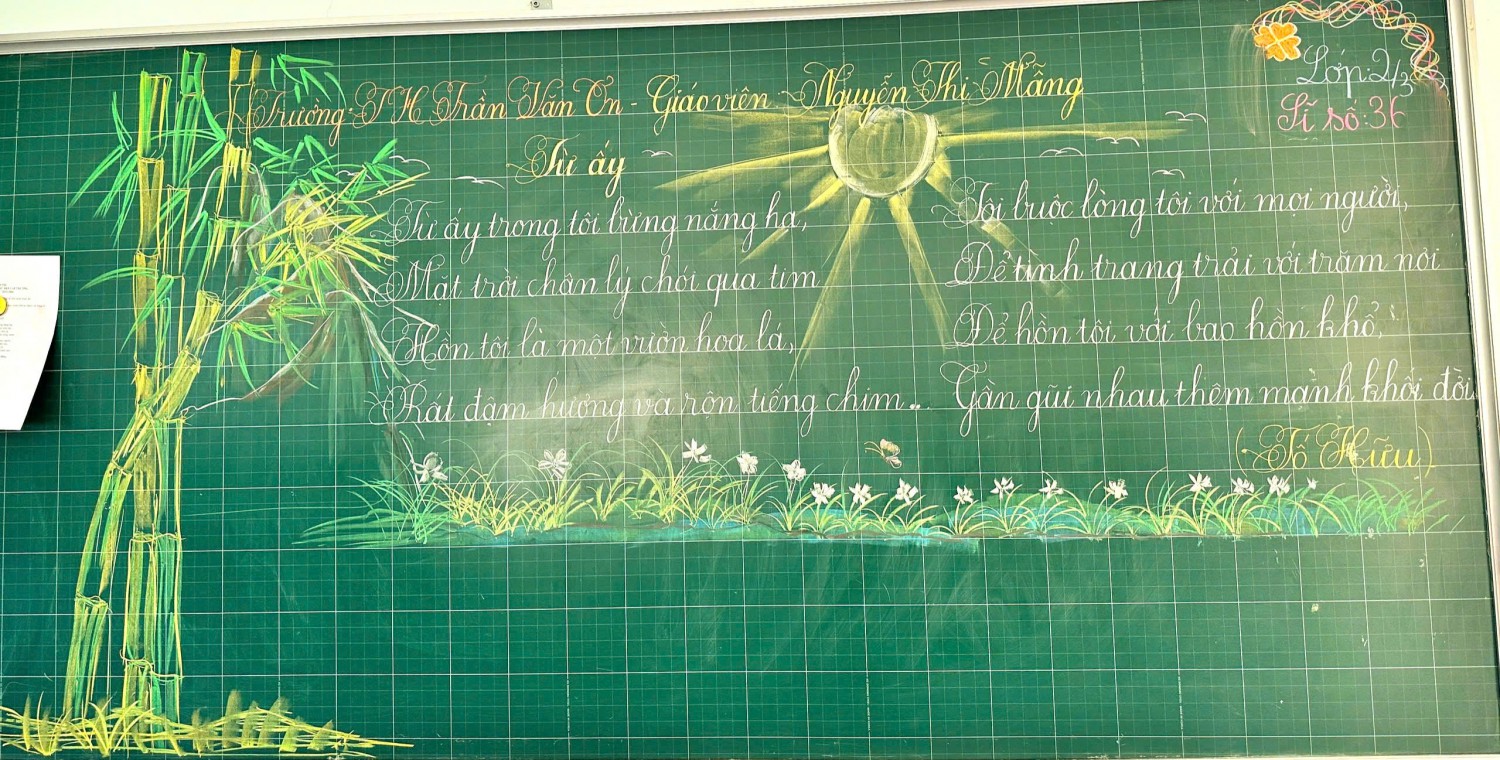 Trường: TH Trần Văn Ơn - Giáo viên: Nguyễn Thị Mãng
Lớp: 2/3
Sĩ số: 36
Từ ấy
Từ ấy trong tôi bừng nắng hạ,
Mặt trời chân lý chói qua tim
Hồn tôi là một vườn hoa lá,
Rất đậm hương và rộn tiếng chim..
Tôi buộc lòng tôi với mọi người,
Để tình trang trải với trăm nơi
Để hồn tôi với bao hồn khổ,
Gần gũi nhau thêm mạnh khối đời
(Tố Hữu)